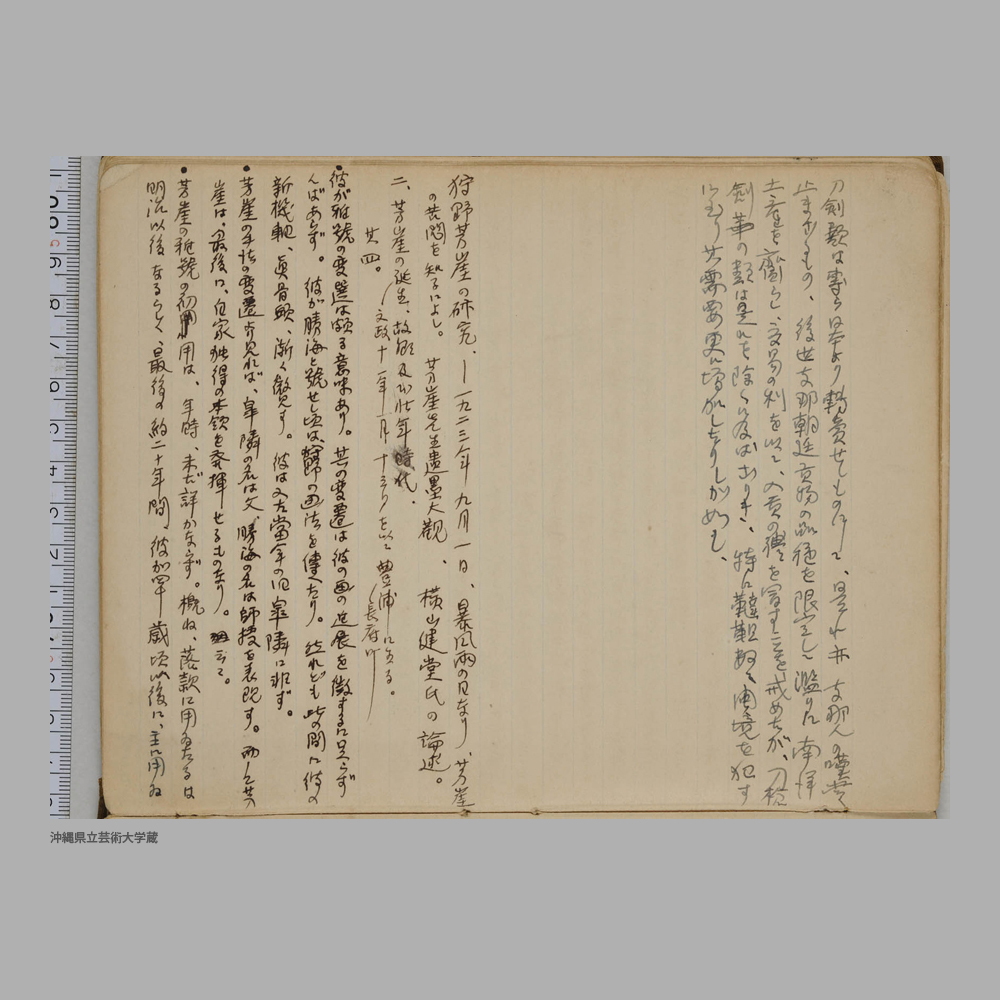 刀剣類は専ら日本より輸貢せしものにして、是れ亦支那人の嗜賞
止まざるもの、後世支那朝廷貢物の種を限定し濫りに南洋
土産を齎らし、交易の利を以て、入貢の禮を冒すことを戒めたが、刀槍
劍革の類は是れを除くに及ばざりき、特に韃靼等辺境を犯す
に至り其需要更に増加したりしが如し、
狩野芳崖の研究、ー一九二三年九月一日、暴風雨の日なり、芳崖
の苦悶を知るによし。芳崖先生遺墨大観、横山健堂氏の論述。
二、芳崖の誕生、故郷及び壮年時代、
文政十一年一月十三日を以て豊浦に生る。
長府町
其四。
・彼が雅號の変遷は頗る意味あり。其の変遷は彼の画の進展を徴するに足らず
んばあらず。彼が勝海と號せし頃は、師の画法を傳へたり。然れども此の間に彼の
新機軸、真骨頭、漸く發す。彼は又古當年の旧皐隣に非ず。
・芳崖の手法の変遷より見れば、皐隣の名は父、勝海の名は師授を表現す。而して芳
崖は、最後に、自家独得の本領を発揮せるものなり。云々。
・芳崖の雅號の初用は、年時、未だ詳かならず。概ね、落款に用ゐたるは
明治以後なるらしく、最後の約二十年間、彼が四十歳頃以後に、主に用ゐ
沖縄県立芸術大学蔵